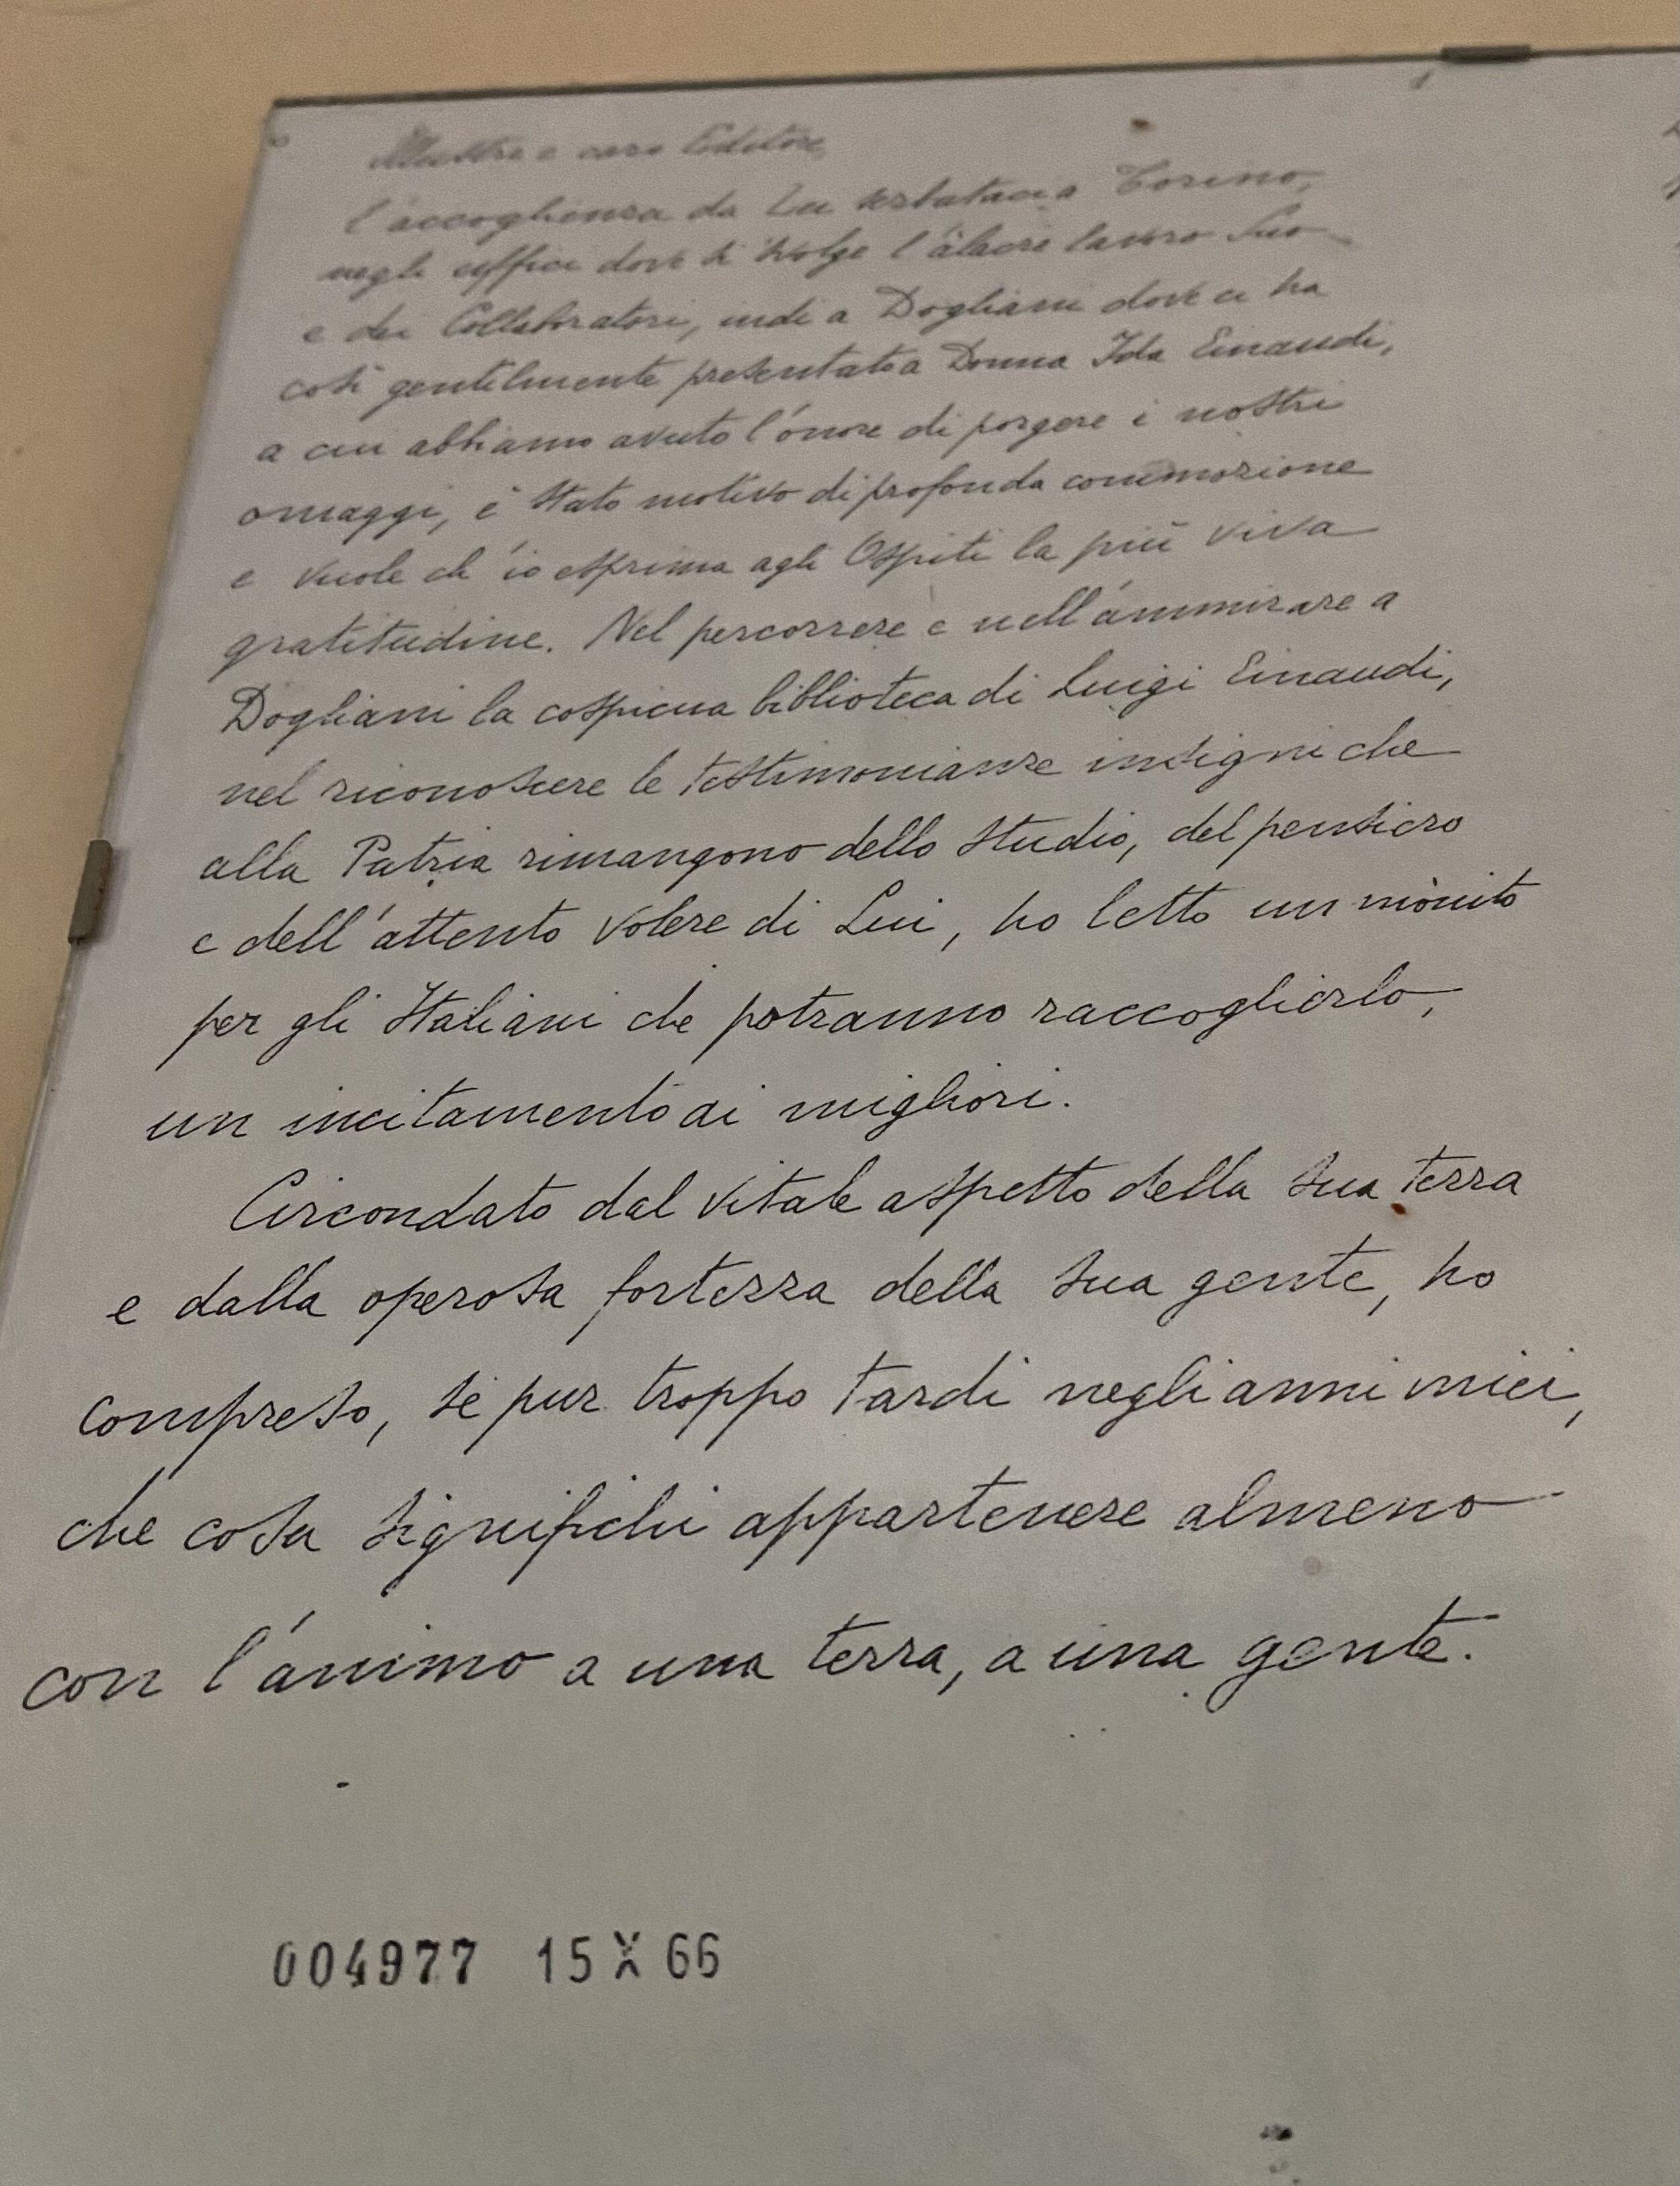 Illustre e caro Editore,
l'accoglienza da Lei serbataci a Torino,
negli uffici dove si svolge l'àlacre lavoro Suo
e dei Collaboratori, indi a Dogliani dove ci ha
così gentilmente presentato a Donna Ida Einaudi,
a cui abbiamo avuto l'onore di porgere i nostri
omaggi, è stato motivo di profonda commozione
e vuole ch'io esprima agli Ospiti la più viva
gratitudine. Nel percorrere e nell'ammirare a
Dogliani la cospicua biblioteca di Luigi Einaudi,
nel riconoscere le testimonianze insigni che
alla Patria rimangono dello studio, del pensiero
e dell'attento volere di Lui, ho letto un mònito
per gli Italiani che potranno raccoglierlo,
un incitamento ai migliori.
Circondato dal vitale aspetto della sua terra
e dalla operosa fortezza della sua gente, ho
compreso, se pur troppo tardi negli anni miei,
che cosa significhi appartenere almeno
con l'animo a una terra, a una gente.
004977 15 X 66